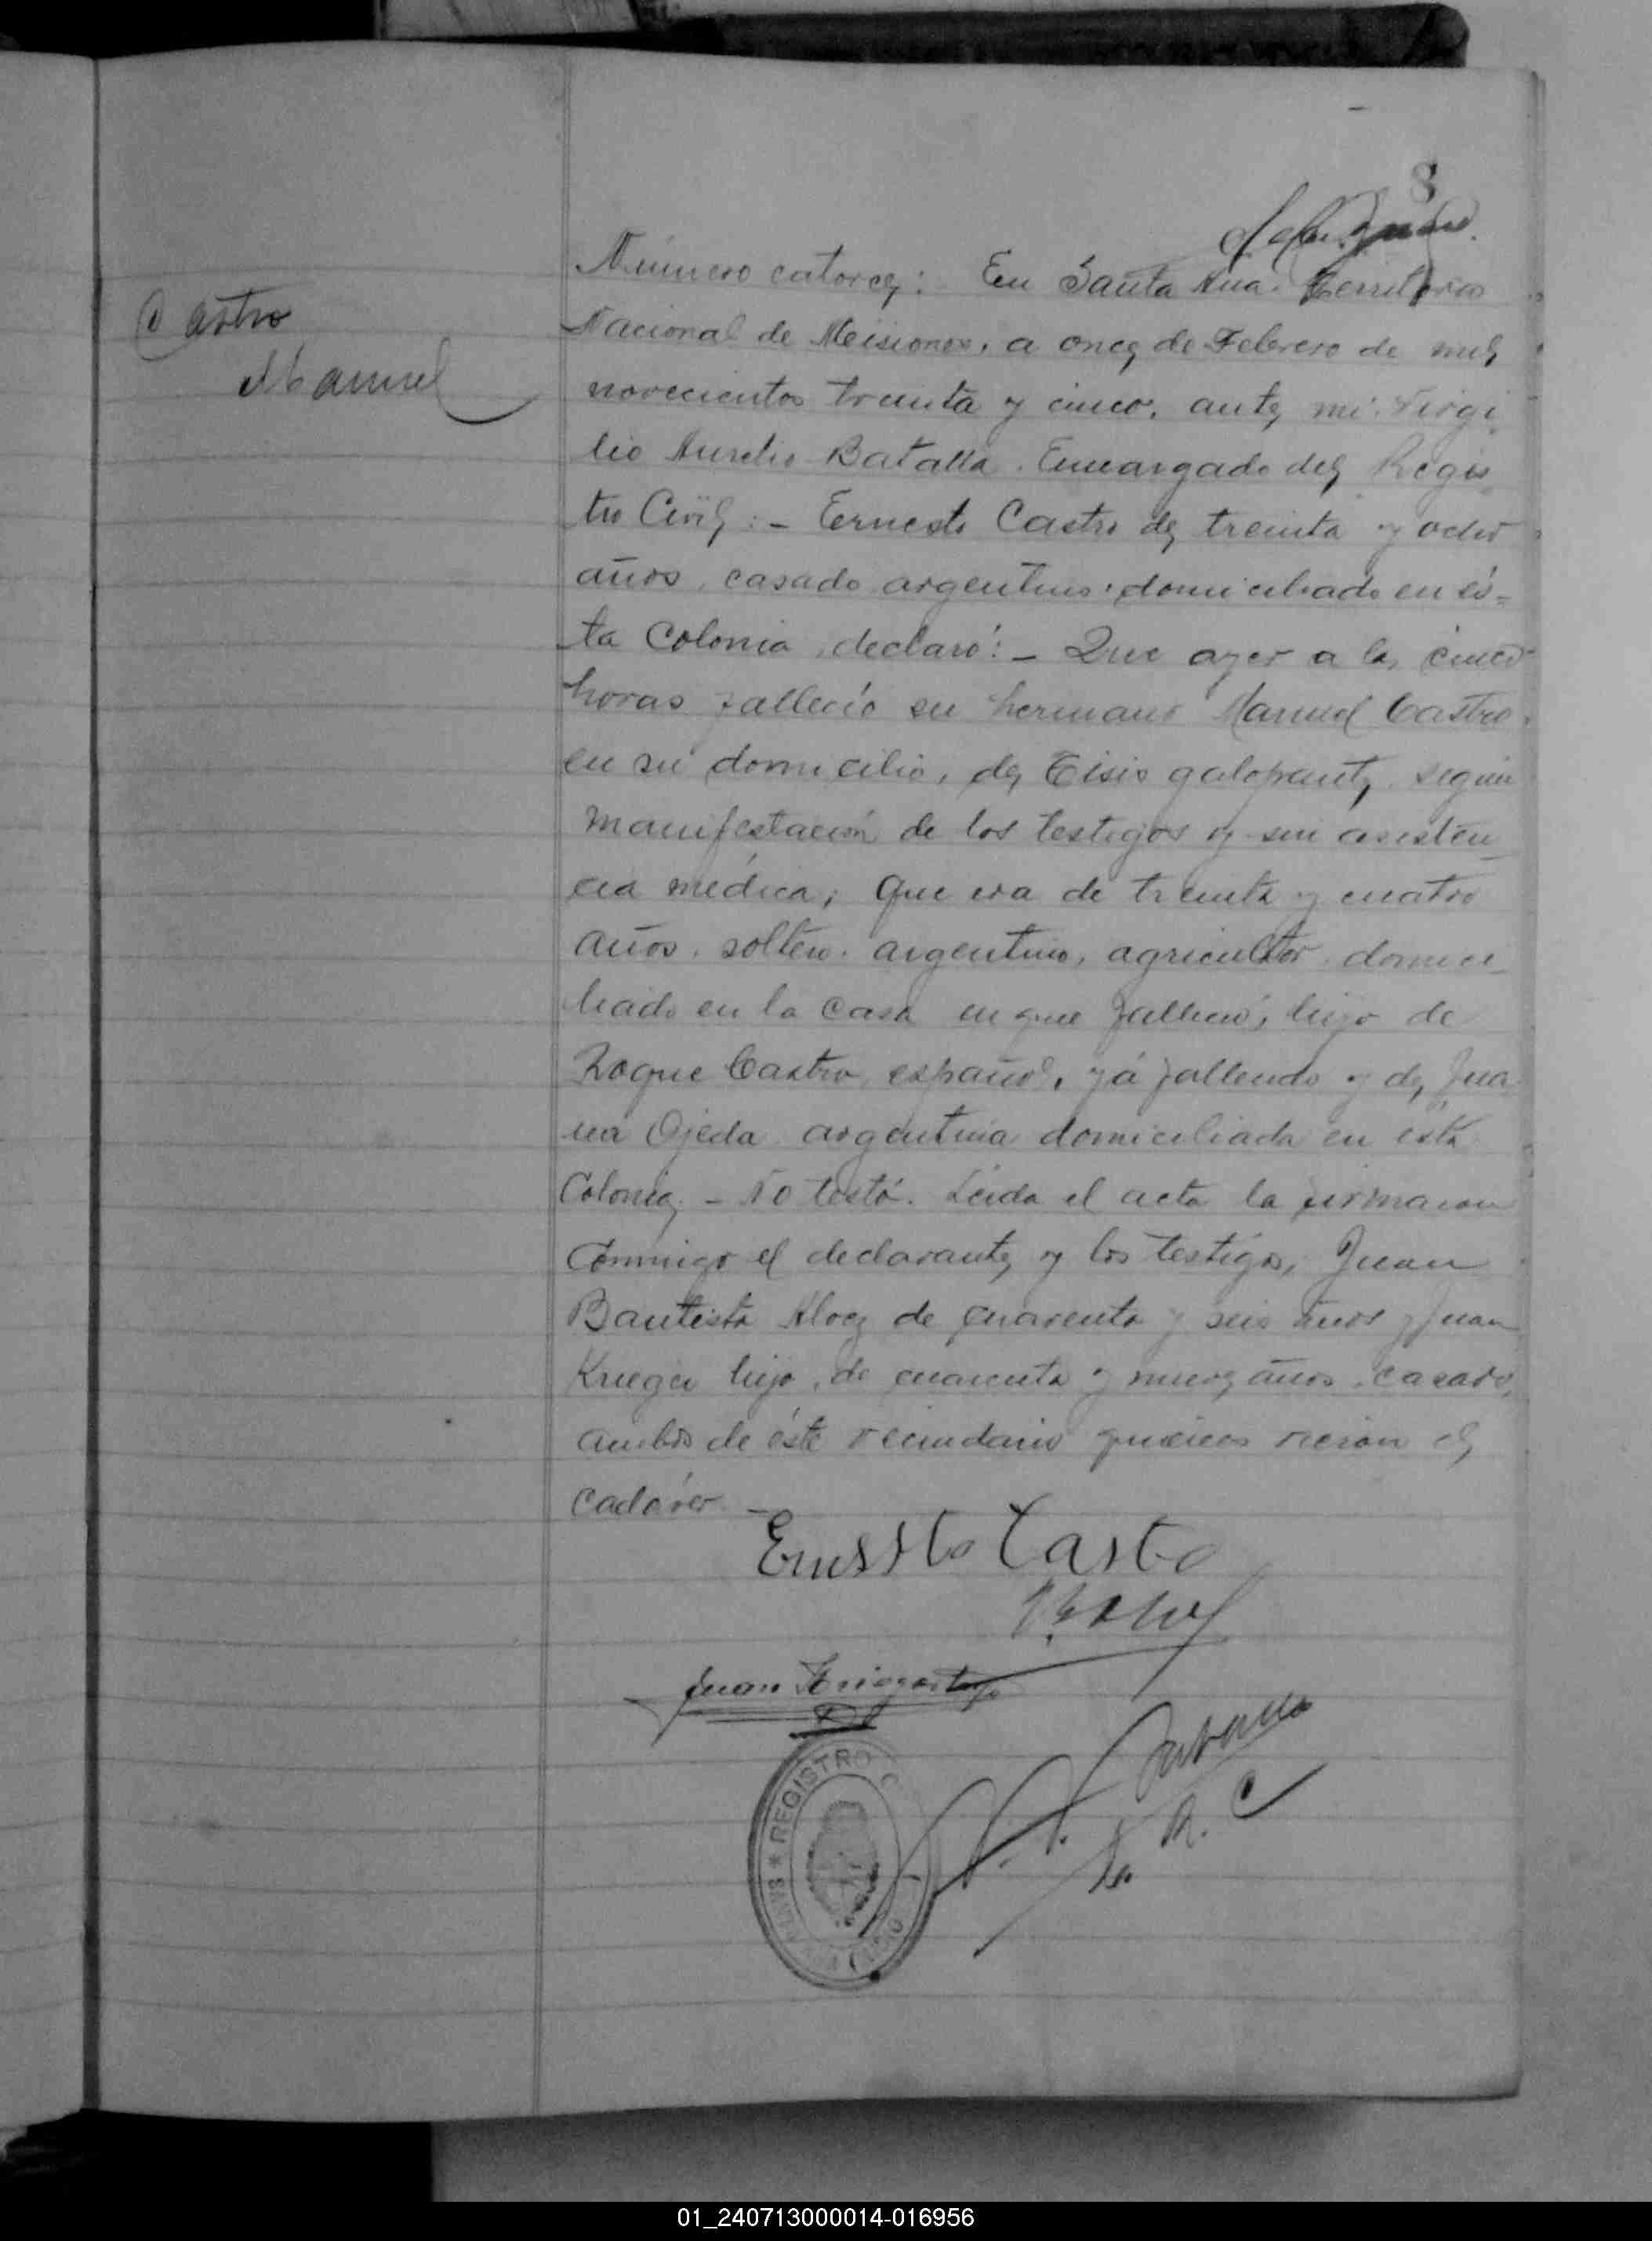 8
Castro
Manuel
Número catorce: En Santa Ana. Territorio
Nacional de Misiones, a once de Febrero de mil
novecientos treinta y cinco, ante mi Virgi
lio Aurelio Batalla. Encargado del Regis
tro Civil: - Ernesto Castro de treinta y ocho
años, casado argentino, domiciliado en és-
ta Colonia, declaró: - Que ayer a las cinco
horas falleció su hermano Manuel Castro
en su domicilio, de Tisis galopante, según
manifestación de los testigos y sin asisten
cia médica; que era de treinta y cuatro
años, soltero, argentino, agricultor, domici
liado en la casa en que falleció, hijo de
Roque Castro, español, yá fallecido y de Jua
na Ojeda argentina domiciliada en ésta
Colonia. - No testó. Leída el acta la firmaron
conmigo el declarante y los testigos, Juan
Bautista de cuarenta y seis años y Juan
Krieger hijo, de cuarenta y nueve años, casado,
ambos de éste vecindario quienes vieron el
cadáver. -
Ernesto Castro
Juan
REGISTRO
SANTA
R. C
01_240713000014-016956